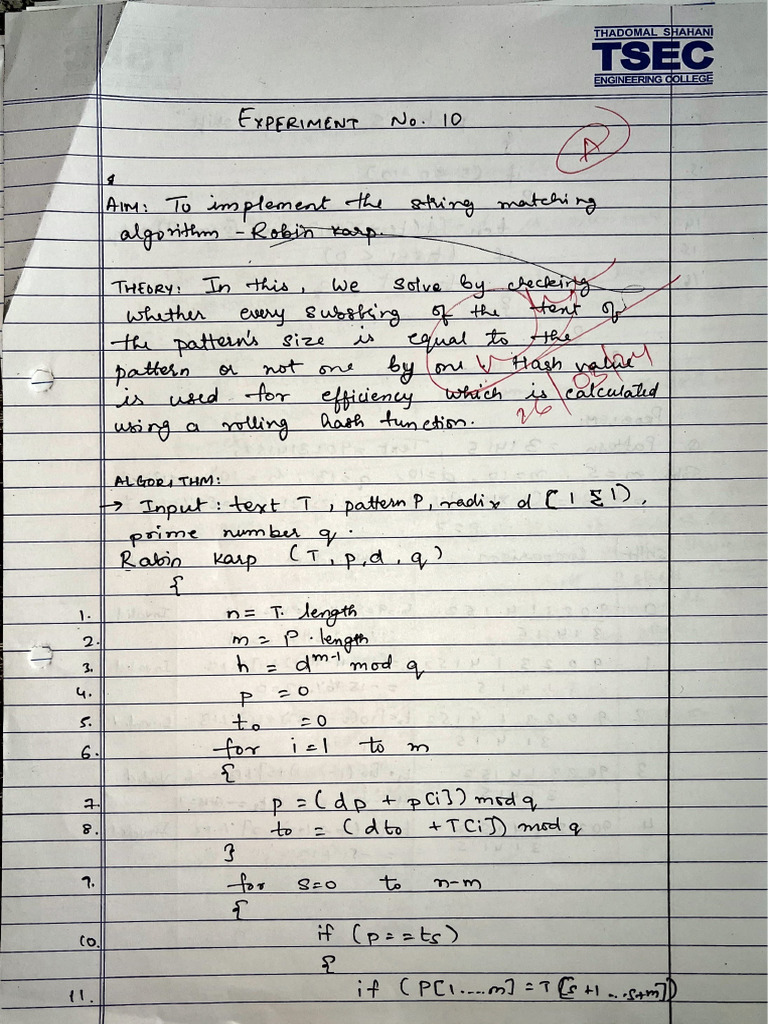 THADOMAL SHAHANI
TSEC
ENGINEERING COLLEGE
EXPERIMENT No. 10
A
AIM: To implement the string matching
algorithm - Robin Karp.
THEORY: In this, we solve by checking
whether every substring of the text of
the pattern's size is equal to the
pattern or not one by one. Hash value
is used for efficiency which is calculated
26/03/24
using a rolling hash function.
ALGORITHM:
→ Input : text T, pattern P, radix d [ | Σ | ),
prime number q.
Rabin Karp (T, p, d, q)
{
1. n = T. length
2. m = P. length
3. h = d^m-1 mod q
4. p = 0
5. to = 0
6. for i = 1 to m
{
7. p = (dp + p[i]) mod q
8. to = (dto + T[i]) mod q
}
9. for s=0 to n-m
{
10. if (p == ts)
{
11. if (P[1....m] = T[s+1 ...s+m])